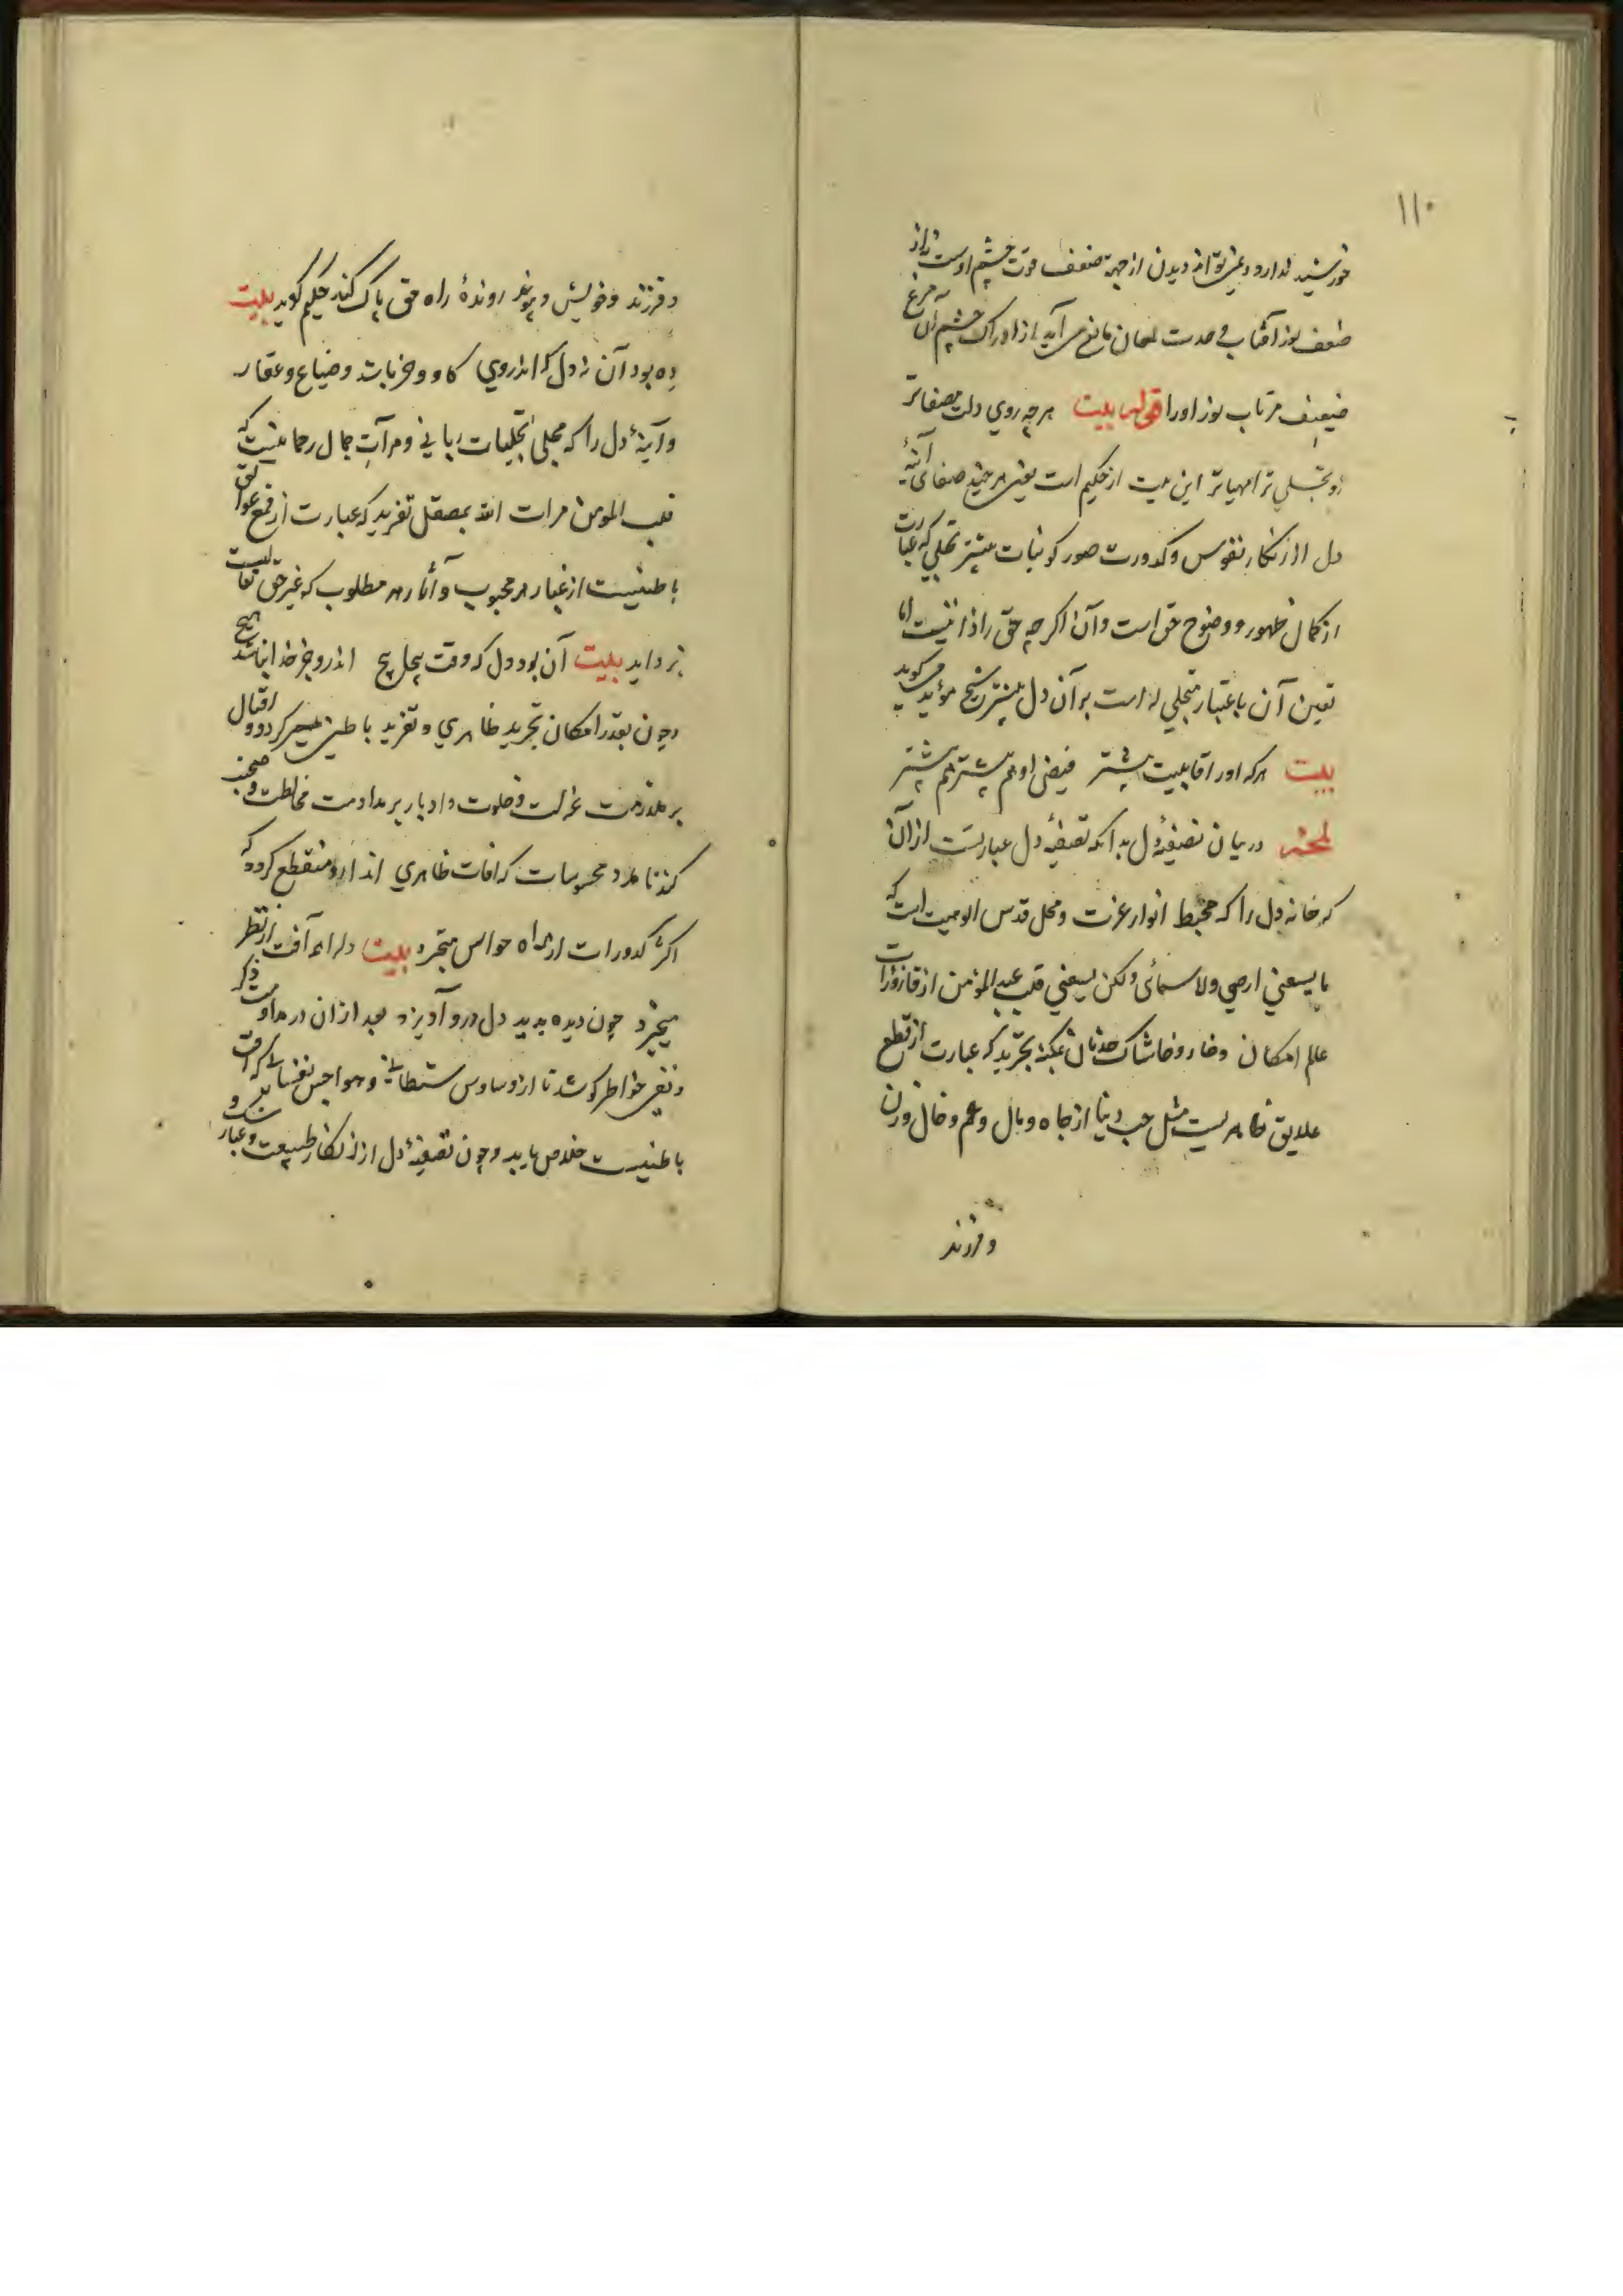 ١١٠
خورشید ندارد و نمیتواند دیدن از جهة ضعف قوت چشم اوست نه از
ضعف نور آفتاب و حدت لمعان مانع می آید از ادراک چشم آن مرغ
ضعیف مر تاب نور او را قوله بیت هر چه روی دلت مصفاتر
زو تجلی ترا مهیاتر این بیت از حکیم است یعنی هر چند صفای آئینهٔ
دل از زنکار نفوس و کدورت صور کونیات بیشتر تجلی که عبارت
از کمال ظهور و وضوح حق است و آن اکر چه حق را ذاتیست اما
تعین آن باعتبار متجلی له است بر آن دل بیشتر شیخ مؤید میکوید
بیت هر که او را قابلیت بیشتر فیض او هم بیشتر هم پیشتر
لمحه در بیان تصفیهٔ دل بدانکه تصفیهٔ دل عبارتست از آن
که خانهٔ دل را که مهبط انوار عزت و محل قدس الوهیت است که
ما یسعنی ارضی ولا سمائی ولکن یسعنی قلب عبد المؤمن از قاذورات
علم امکان و خار و خاشاک حدثان بمکنهٔ تجرید که عبارت از قطع
علایق ظاهریست مثل حب دنیا از جاه و مال و عم و خال و زن
و فرزند
و فرزند و خویش و پیوند روندهٔ راه حق پاک کند حکیم کوید بیت
ده بود آن نه دل که اندروی کاو و خر باشد و ضیاع و عقار
و آینهٔ دل را که مجلی تجلیات ربانی و مرآت جمال رحمانیست که
قلب المومن مرات الله بمصقل تفرید که عبارت از رفع عوائق
باطنیست از غبار هر محبوب و آثار هر مطلوب که غیر حق تعالیست
بزداید بیت آن بود دل که وقت پیچاپیچ اندرو جز خدا نباشد هیچ
و چون بقدر امکان تجرید ظاهری و تفرید باطنی میسر کردد و اقبال
بر ملازمت عزلت و خلوت و ادبار بر مداومت مخالطت و صحبت
کند تا مدد محسوسات که افات ظاهری اند از و منقطع کردد که
اکثر کدورات از راه حواس متجرد بیت دلرا همه آفت از نظر
میخیزد چون دیده بدید دل درو آویزد بعد از ان در مداومت ذکر
و نفی خواطر کوشد تا از وساوس شیطانی و هواجس نفسانی که آفت
باطنیست خلاص یابد و چون تصفیهٔ دل از زنکار طبیعت و غبار